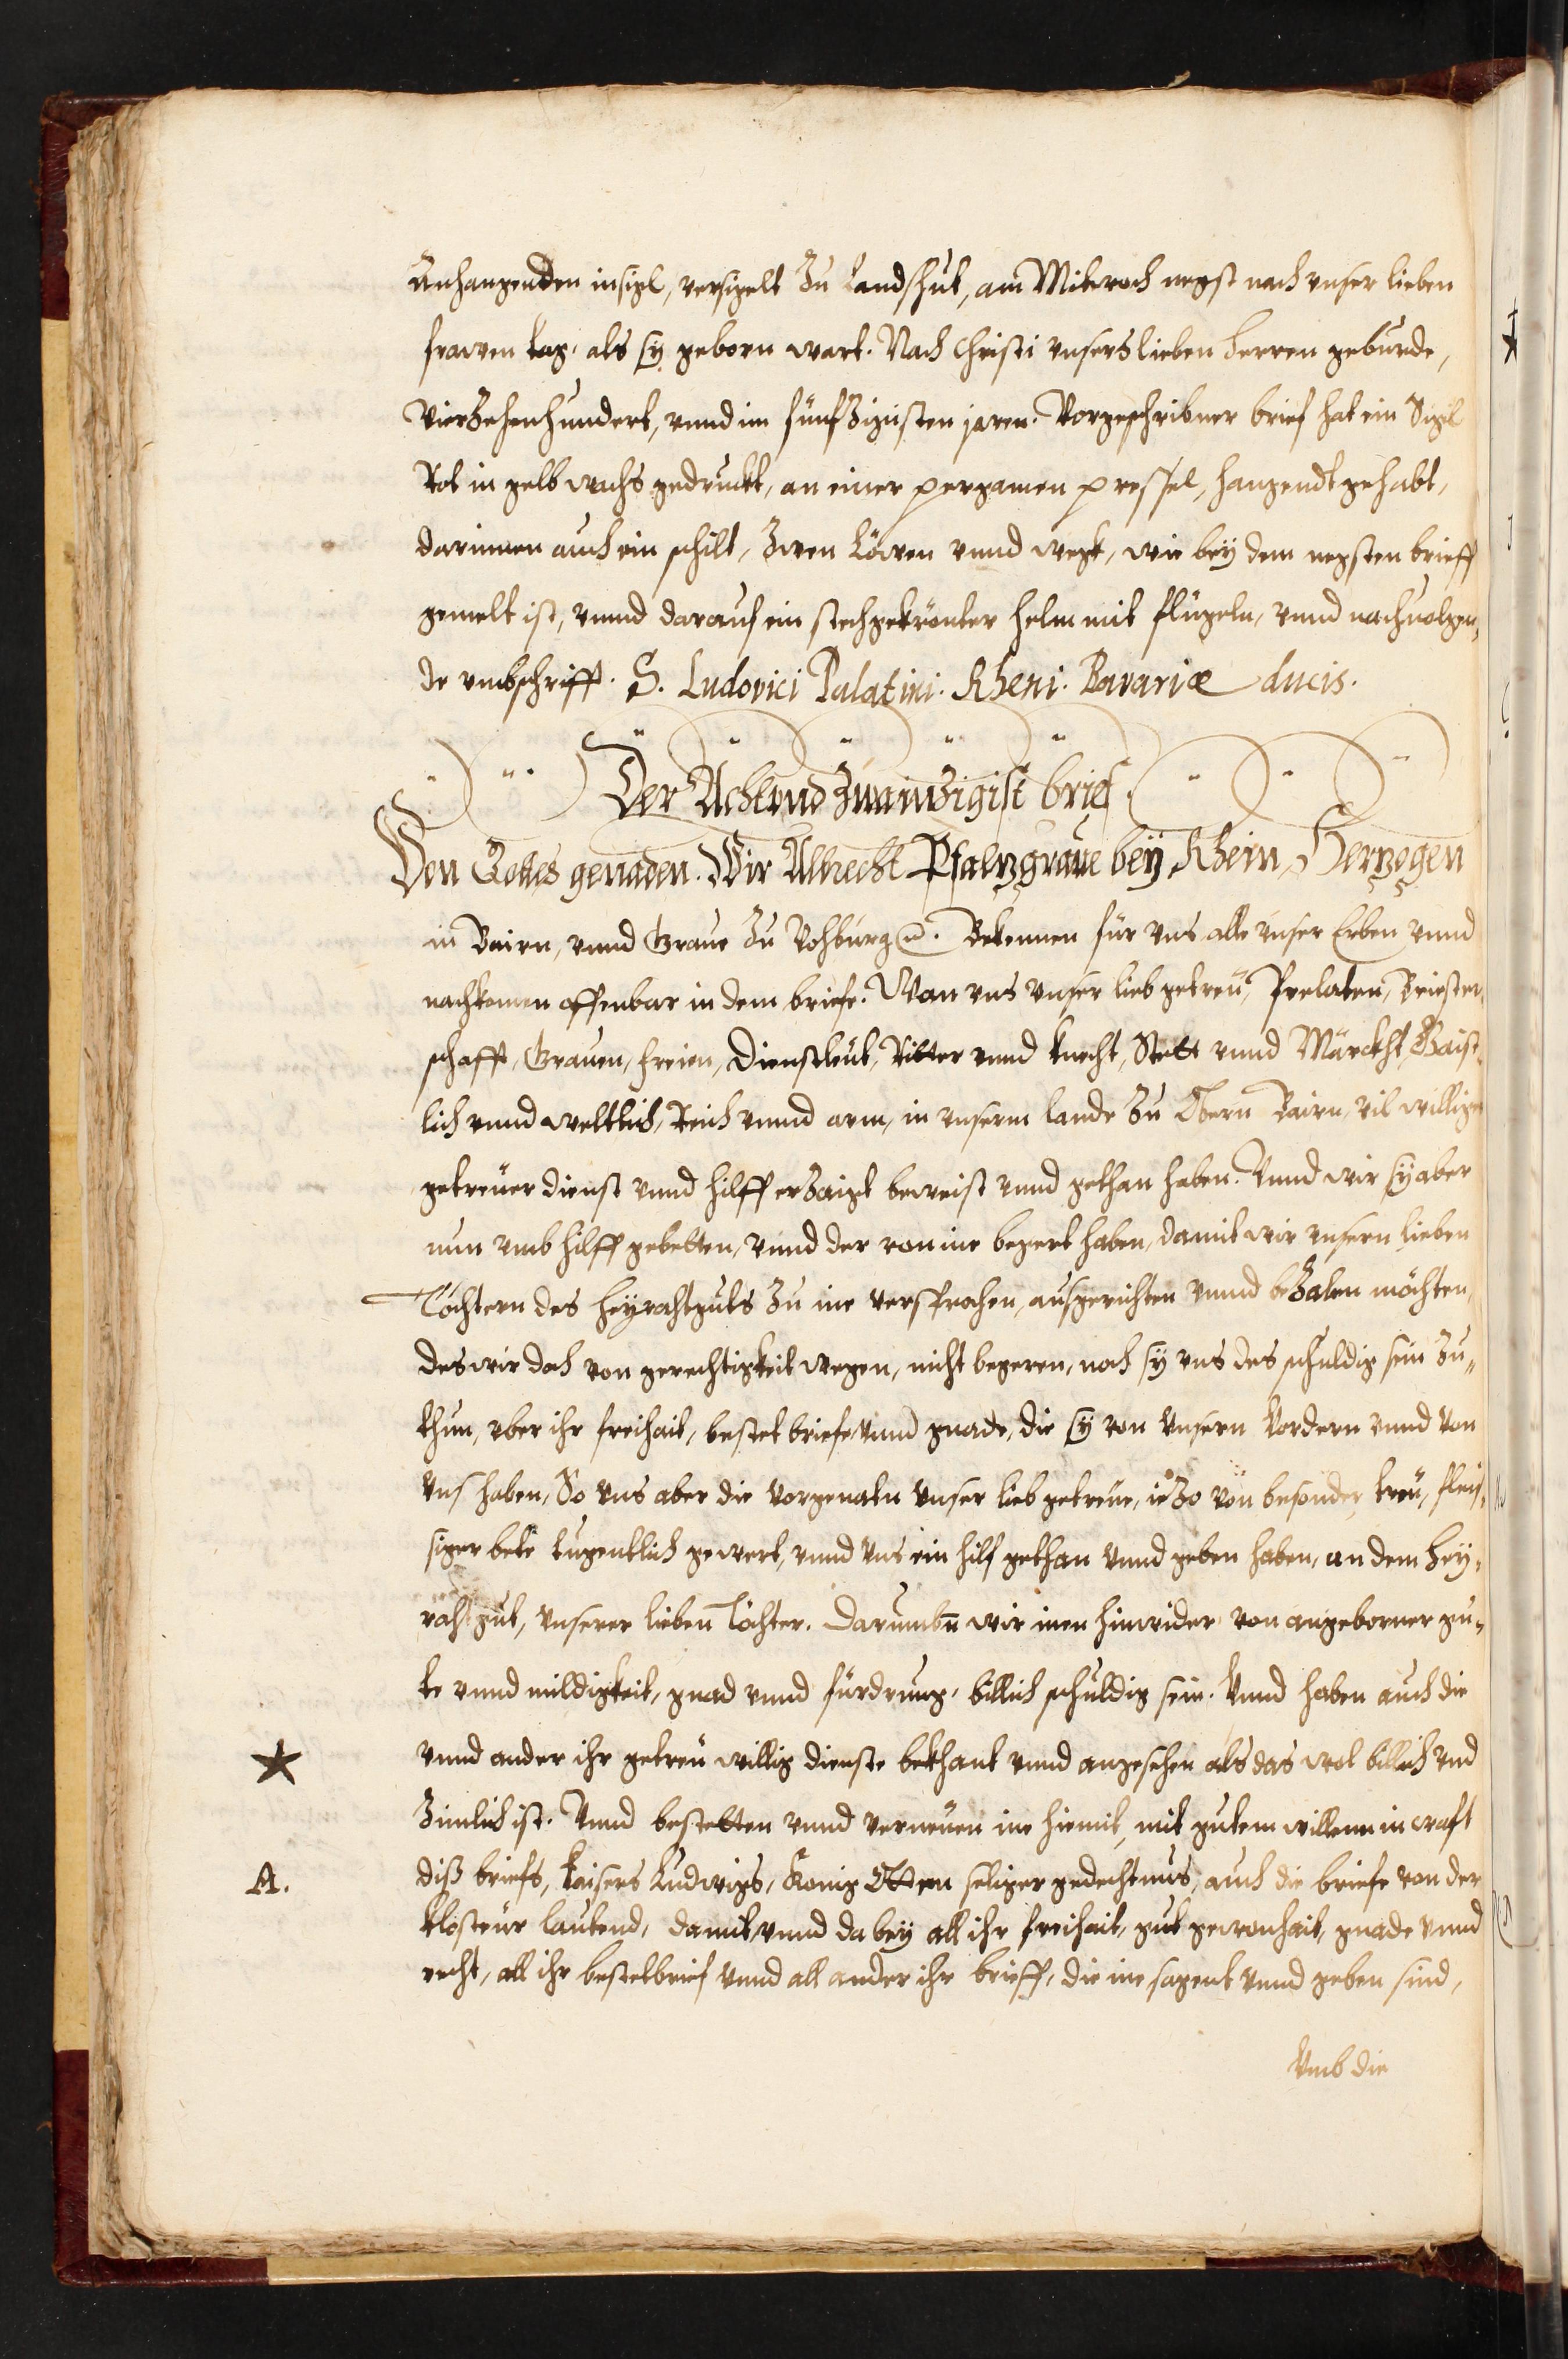 Anhangenden insigl, versigelt Zu Landshut, am Mitwoch negst nach unser lieben
frawen tag, als sy geborn wart. Nach Christi unsers lieben herren geburde,
VierZehenhundert, unnd im fünfZigisten jaren. Vorgeschribner brief hat ein Sigil
Rot in gelb wachs gedruckt, an einer pergamen pressel, hangendt gehabt,
darinnen auch ein schilt, Zwen Löwen unnd wegk, wie bey dem negsten brieff
gemelt ist, unnd darauf ein stechgekrönter helm mit flügeln, unnd nachuolgen„
de umbschrifft. S. Ludovici Palatini. Rheni. Bavariæ ducis.
Der Achtund Zwainzigist brief.
Von Gottes genaden. Wir Albrecht Pfalzgraue beÿ Rhein, Herzogen
in Bairn, unnd Graue Zu Vohburg etc. Bekennen für uns alle unser Erben unnd
nachkomen offenbar in dem briefe. Wan uns unser lieb getreü, Prelaten, Briester„
schafft, Grauen, freien, Dienstleüt, Ritter unnd knecht, Stett unnd Märckht, Gaist„
lich unnd weltlich, Reich unnd arm, in unserm lande Zu Obern Bairn, vil williger
getreüer dienst unnd hilff erZaigt beweist unnd gethan haben. Unnd wir sy aber
nun umb hilff gebetten, unnd der von ine begert haben, damit wir unsern lieben
Töchtern des heyrahtguts Zu ine versprochen, ausgerichten unnd beZalen möchten,
des wir doch von gerechtigkeit wegen, nicht begeren, noch sy uns des schuldig sein Zu„
thun, uber ihr freihait, bestet briefe unnd gnade, die sy von unsern vordern unnd von
uns haben, So uns aber die vorgenantn unser lieb getreue, ieZo von besonder treü, fleis„
siger bete tugentlich gewert, unnd uns ein hilf gethan unnd geben haben, an dem hey„
rahtgut, unserer lieben Töchter. Darumbn wir inen hinwider von angeborner gu„
te unnd mildigkeit, gnad unnd fürdrung, billich schuldig sein. Unnd haben auch die
unnd ander ihr getreü willig dienste bekhant unnd angesehen als das wol billich und
Zimlich ist. Unnd bestetten unnd verneuen ine hiemit, mit gutem willenn in craft
A. diß briefs, kaisers Ludwigs, Konig Otten seliger gedechtnus, auch die briefe von der
klosteür lautend, damit unnd da bey all ihr freihait, gut gewonhait, gnade unnd
recht, all ihr bestetbrief unnd all ander ihr brieff, die ine sagent unnd geben sind,
Umb die